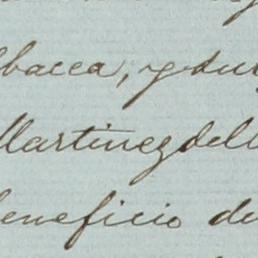 bacca, y su
Martinez del
beneficio de